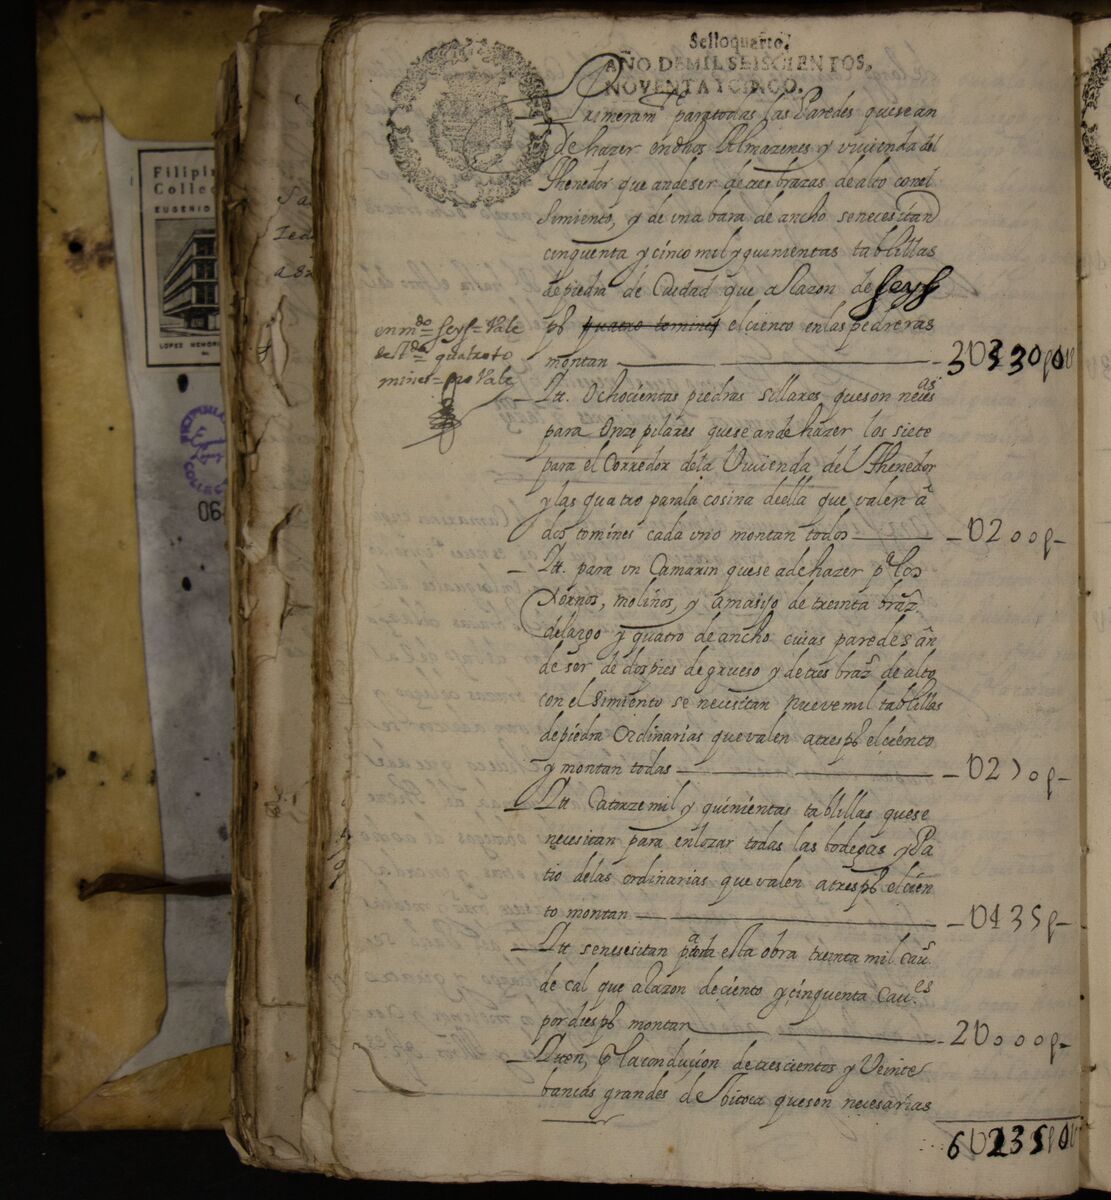 Selloquarto,
AÑO DEMIL SEISCIENTOS,
NOVENTA Y CINCO.
Primeram.te paratodas las Paredes quesean
de hazer endhos Almazenes y vivienda del
Thenedor que andeser detres brazas dealto conel
Simiento, y de vna bara de ancho senecesitan
cinquenta y cinco mil y quinientas tablillas
depiedra de Ciudad que a Razon de seys
ps quatro tomines el ciento enlas pedreras
montan
3U330p0U
enm.do seys = Vale
quatro to
mines = no Vale
Ytt. Ochocientas piedras sillares queson neces.as
para Onze pilares quese andehazer los siete
para el Corredor dela Vivienda del Thenedor
y las quatro parala cosina deella que valen â
dos tomines cada vno montan todos
U200p
Ytt. para vn Camarin quese adehazer p.a los
Xornos, moliños, y amasijo de treinta braz.s
delargo y quatro de ancho cuias paredes an
de ser de dospies de grueso y detres braz.s de alto
con el Simiento se necesitan nuevemil tablillas
depiedra Ordinarias quevalen atres ps elciento
y montan todas
U270p
Ytt Catorzemil y quinientas tablillas quese
necesitan para enlozar todas las bodegas y Pa
tio delas ordinarias que valen atres ps elcien
to montan
U435p
Ytt senesesitan p.a toda esta obra treinta mil Cau.s
de cal que arazon deciento y cinquenta Cau.es
pordies ps montan
2U000p
Ytten, p la conduçion detrescientos y Veinte
bancas grandes de queson necesarias
6U235p0U
Filipin
Collec
EUGENIO
LOPEZ MEMORI
COLLEC
06